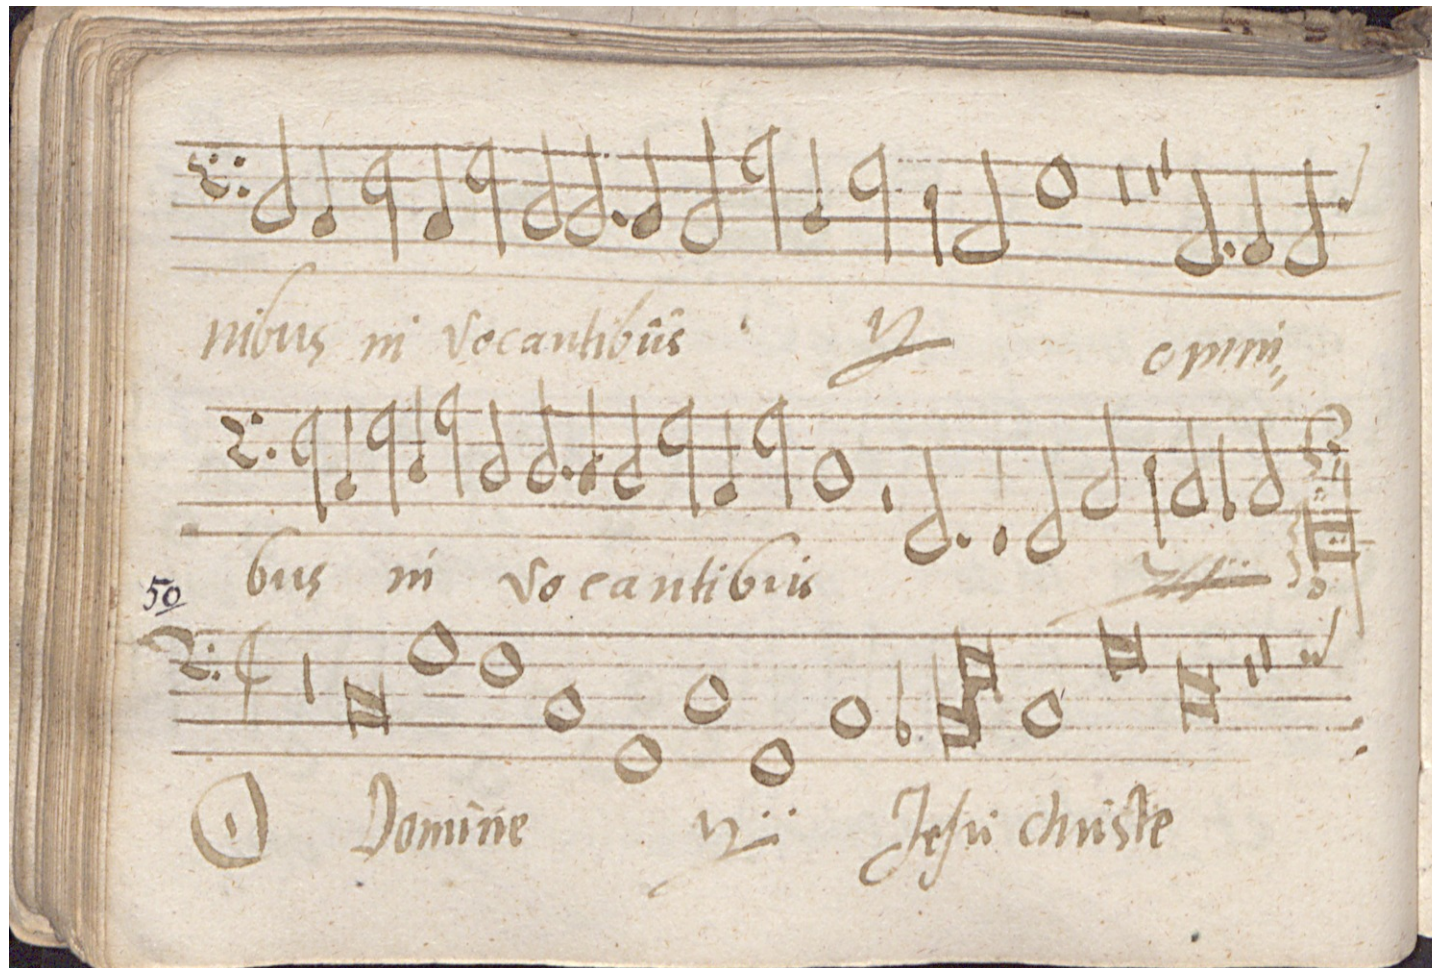 nibus in vocantibus ij omni,,
bus in vocantibus ij
50
O Domine ij Jesu christe